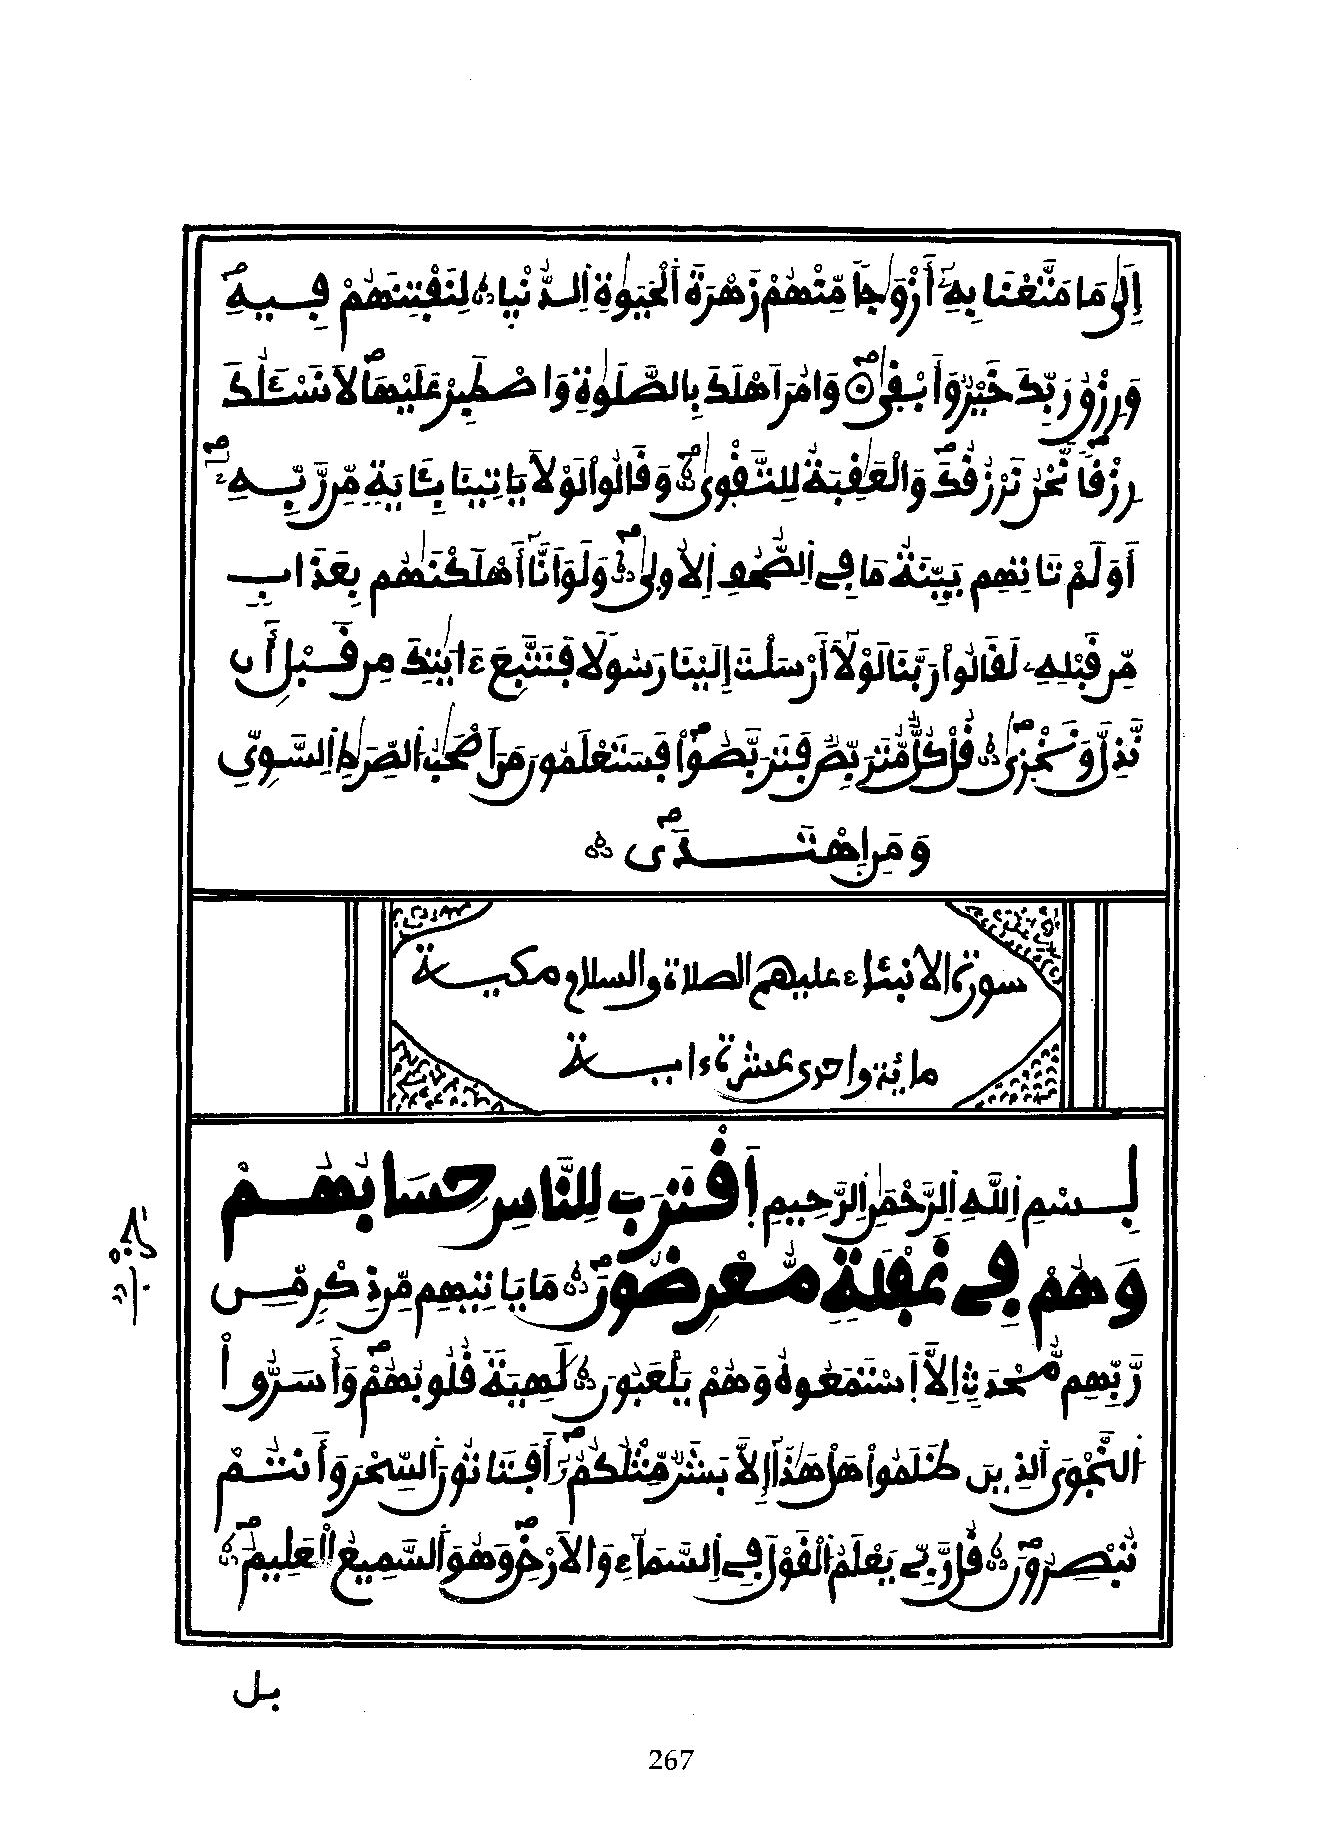 إِلَىٰ مَا مَتَّعْنَا بِهِۦٓ أَزْوَٰجاً مِّنْهُمْ زَهْرَةَ اَ۬لْحَيَوٰةِ اِ۬لدُّنْي۪ا لِنَفْتِنَهُمْ فِيهِ
وَرِزْقُ رَبِّكَ خَيْرٌ وَأَبْق۪ىٰ وَامُرَ اَهْلَكَ بِالصَّلَوٰةِ وَاصْطَبِرْ عَلَيْهَا لَا نَسْـَٔلُكَ
رِزْقاً نَّحْنُ نَرْزُقُكَ وَالْعَٰقِبَةُ لِلتَّقْو۪ىٰ وَقَالُواْ لَوْلَا يَاتِينَا بِـَٔايَةٖ مِّن رَّبِّهِۦٓ
أَوَلَمْ تَاتِهِم بَيِّنَةُ مَا فِي اِ۬لصُّحُفِ اِ۬لُاول۪ىٰ وَلَوَ اَنَّآ أَهْلَكْنَٰهُم بِعَذَابٖ
مِّن قَبْلِهِۦ لَقَالُواْ رَبَّنَا لَوْلَآ أَرْسَلْتَ إِلَيْنَا رَسُولاً فَنَتَّبِعَ ءَايَٰتِكَ مِن قَبْلِ أَن
نَّذِلَّ وَنَخْز۪ىٰ قُلْ كُلٌّ مُّتَرَبِّصٌ فَتَرَبَّصُواْ فَسَتَعْلَمُونَ مَنَ اَصْحَٰبُ اُ۬لصِّرَٰطِ اِ۬لسَّوِيِّ
وَمَنِ اِ۪هْتَد۪ىٰ
سورة الانبئاء عليهم الصلاة والسلام مكية
مائة واحدى عشرة ءاية
بِسْمِ اِ۬للَّهِ اِ۬لرَّحْمَٰنِ اِ۬لرَّحِيمِ اِ۪قْتَرَبَ لِلنَّاسِ حِسَابُهُمْ
وَهُمْ فِي غَفْلَةٖ مُّعْرِضُونَ مَا يَاتِيهِم مِّن ذِكْرٖ مِّن
رَّبِّهِم مُّحْدَثٍ اِلَّا اَ۪سْتَمَعُوهُ وَهُمْ يَلْعَبُونَ لَٰهِيَةً قُلُوبُهُمْ وَأَسَرُّواْ
اُ۬لنَّجْوَى اَ۬لذِينَ ظَلَمُواْ هَلْ هَٰذَآ إِلَّا بَشَرٌ مِّثْلُكُمْ أَفَتَاتُونَ اَ۬لسِّحْرَ وَأَنتُمْ
تُبْصِرُونَ قُل رَّبِّي يَعْلَمُ اُ۬لْقَوْلَ فِي اِ۬لسَّمَآءِ وَالَارْضِ وَهُوَ اَ۬لسَّمِيعُ اُ۬لْعَلِيمُ
بل
267